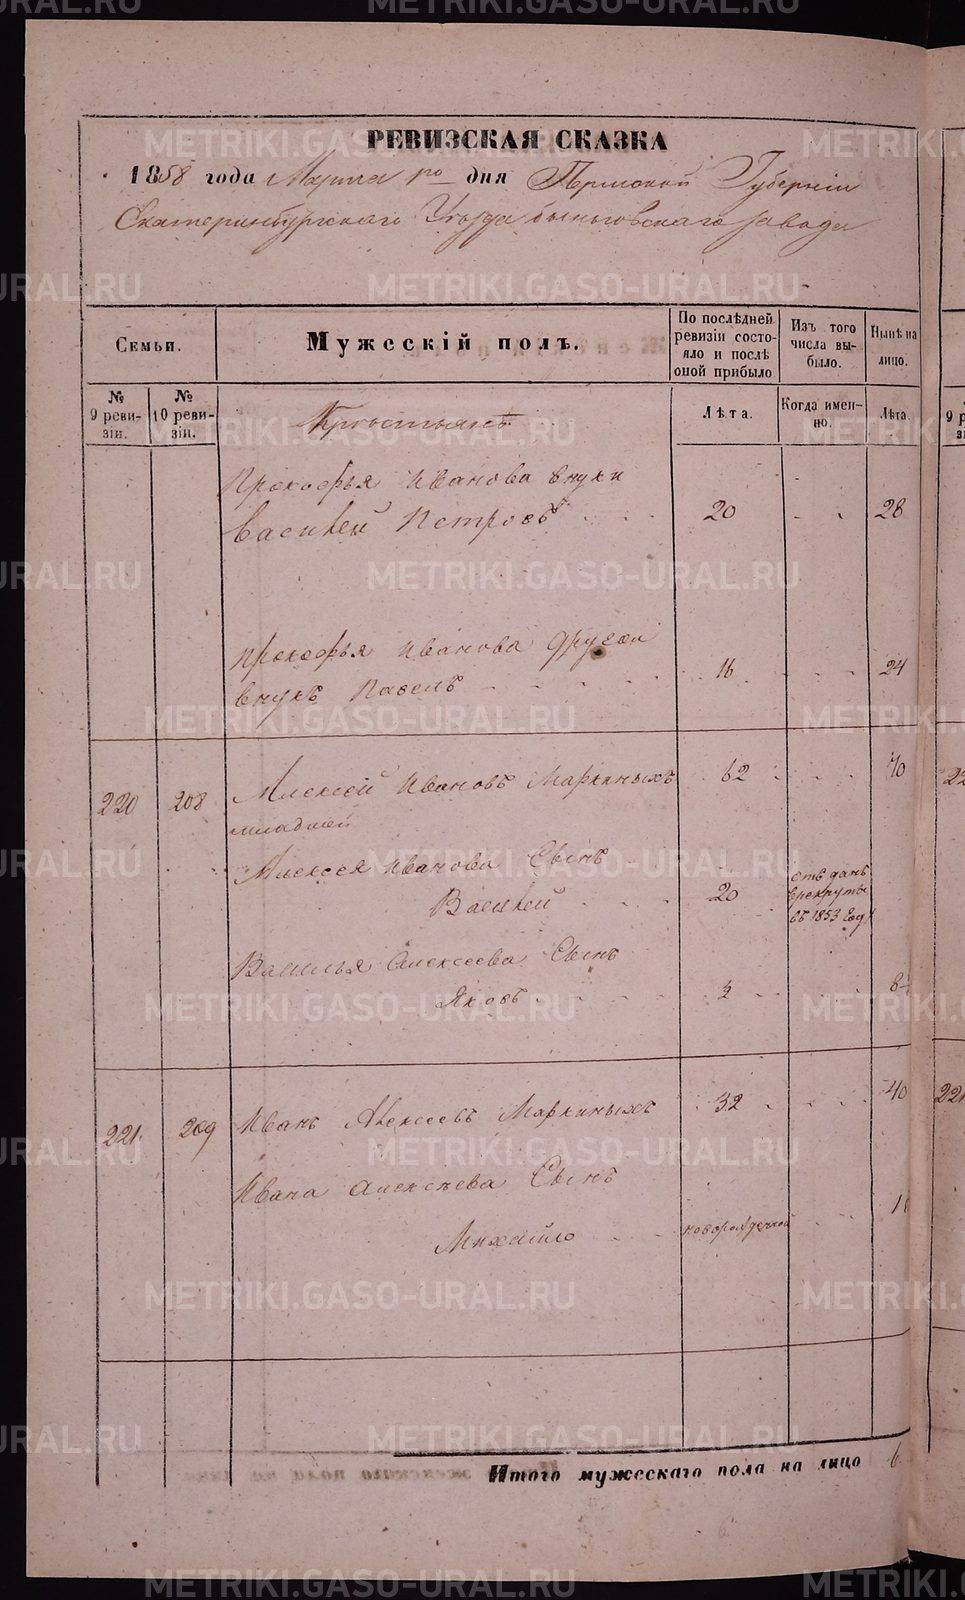 РЕВИЗСКАЯ СКАЗКА
1858 года Марта 1го дня Пермской Губерніи
Екатеринбургскаго Уезда Быньговскаго завода
Семьи.
Мужескій полъ.
По послѣдней ревизіи состояло и послѣ оной прибыло
Изъ того числа выбыло.
Нынѣ на лицо.
№ 9 ревизіи.
№ 10 ревизіи.
Крестьянъ
Лѣта.
Когда именно.
Лѣта.
Прокофья Иванова внуки
Василей Петровъ 20 28
Прокофья Иванова другой
внукъ Павелъ 16 24
220 208 Алексей Ивановъ Маркиныхъ 62 70
младшей
Алексея Иванова Сынъ
Василей 20 отъ данъ
врекруты
въ 1853 году
Василья Алексеева Сынъ
Яковъ
221. 209 Иванъ Алексеевъ Маркиныхъ 32 40
Ивана Алексеева Сынъ
Михайло новорожденной
Итого мужескаго пола на лицо 6
METRIKI.GASO-URAL.RU